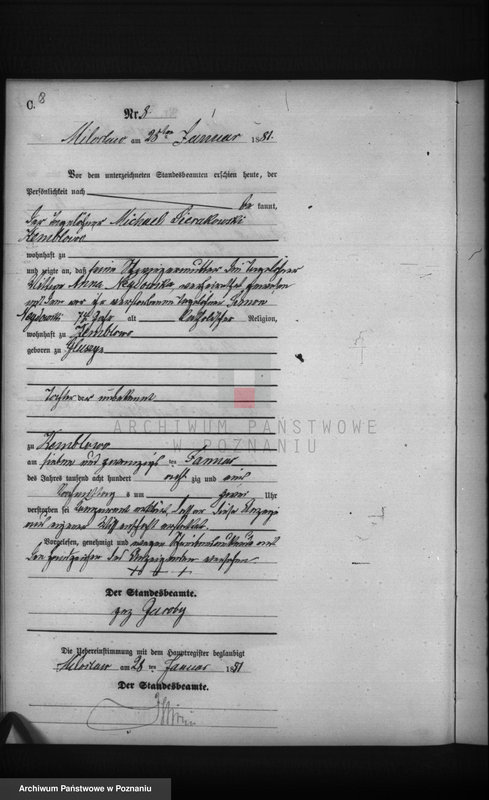 C. 8
Nr. 8
Miloslaw am 28ten Januar 1881.
Vor dem unterzeichneten Standesbeamten erschien heute, der
Persönlichkeit nach
be kannt,
der Tagelöhner Michael Sierakowski
Kemblowo
wohnhaft zu
und zeigte an, daß seine Schwiegermutter die Tagelöhner
Wittwe Anna verheirathet gewesen
mit dem vor ihr verstorbenen Tagelöhner
74 Jahr alt katholischer Religion,
wohnhaft zu Kemblowo
geboren zu
Tochter der unbekannt
zu Kemblowo
am sieben und zwanzigsten Januar
des Jahres tausend acht hundert acht zig und eins
Nachmittag s um zwei Uhr
verstorben sei
aus eigener Wissenschaft
Vorgelesen, genehmigt und wegen Schreibensunkunde mit
den Handzeichen des Anzeigenden versehen.
+ + +
Der Standesbeamte.
gez Jacoby
Die Uebereinstimmung mit dem Hauptregister beglaubigt
Miloslaw am 28 ten Januar 1881
Der Standesbeamte.
ARCHIWUM PAŃSTWOWE
W POZNANIU
Archiwum Państwowe w Poznaniu